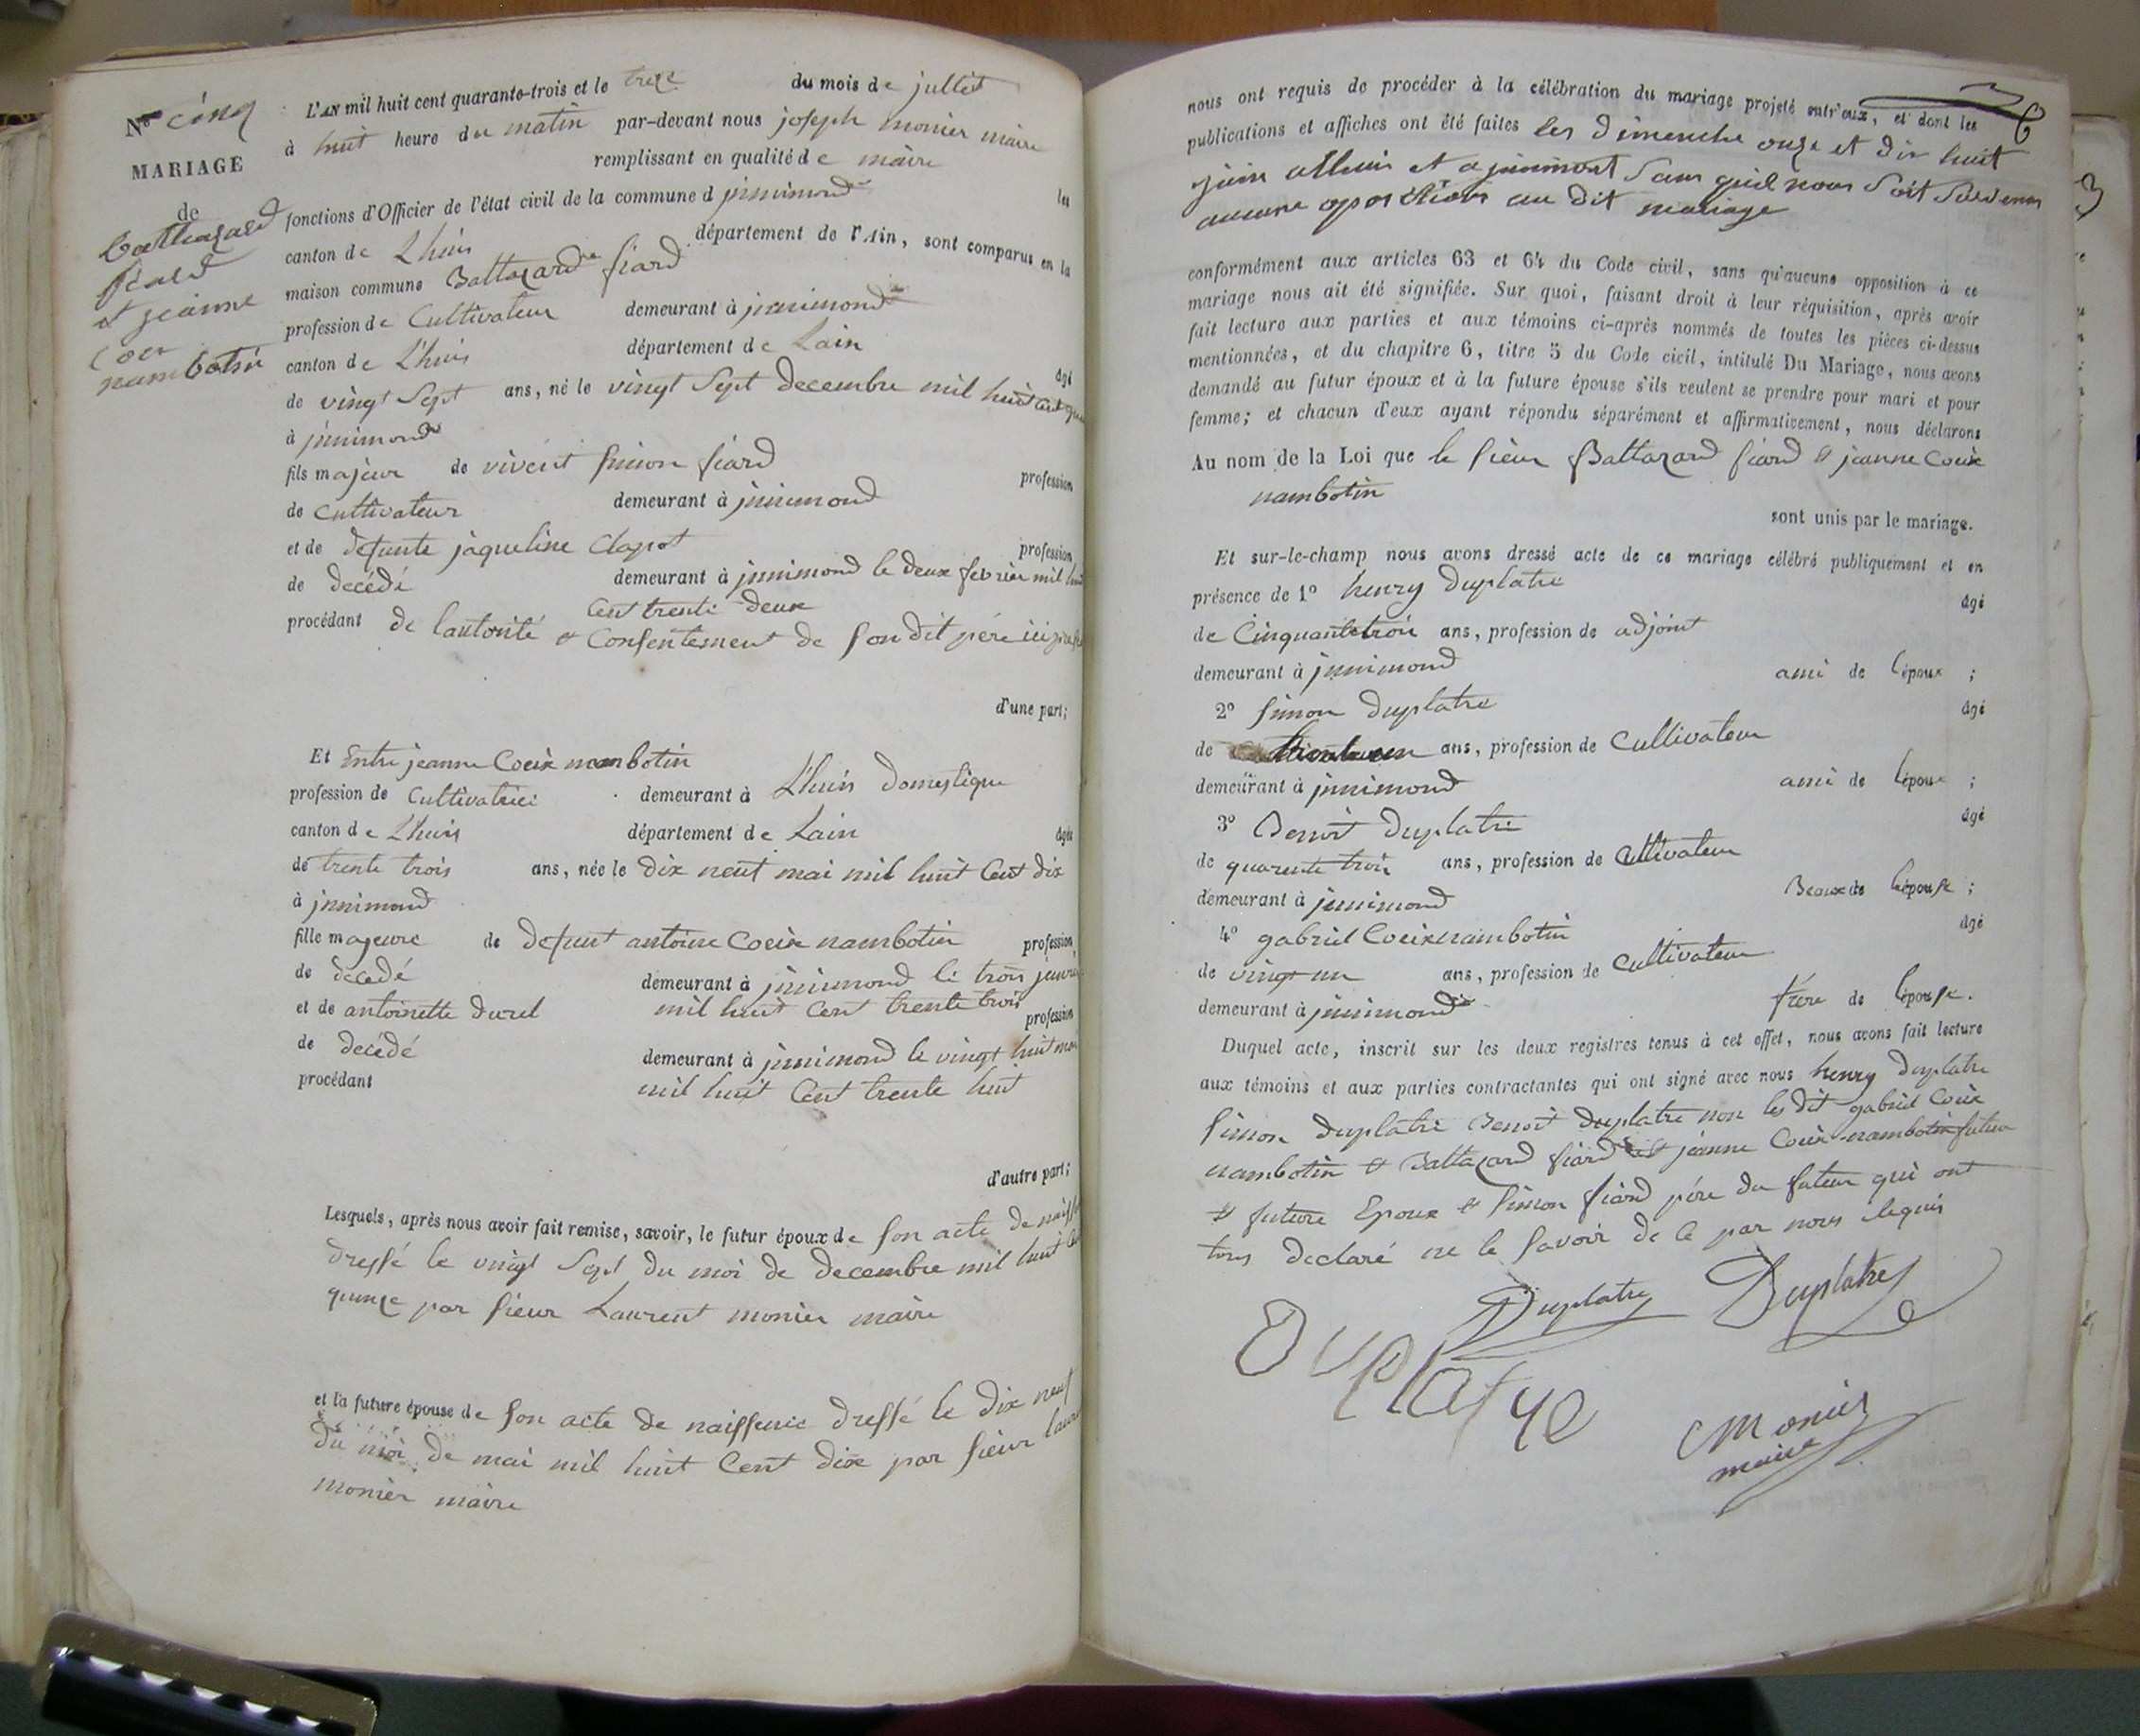 Nº cinq
MARIAGE
de
Balthazard
fiard
et jeanne
Coeu
nambotin
L'AN mil huit cent quarante-trois et le treze du mois de jullet
à huit heure du matin par-devant nous joseph monier maire
remplissant en qualité de maire les
fonctions d'Officier de l'état civil de la commune d jnnimond
canton de Lhuis département de l'Ain, sont comparus en la
maison commune Baltazard fiard
profession de Cultivateur demeurant à jnnimond
canton de Lhuis département de Lain âgé
de vingt Sept ans, né le vingt Sept decembre mil huit cent
à jnnimond
fils majeur de vivent simon fiard profession
de Cultivateur demeurant à jnnimond
et de defunte jaqueline Clapot profession
de decédé demeurant à jnnimond le deux fevrier mil huit
Cent trente deux
procédant de lautorité et Consentement de son dit pére ici
d'une part;
Et Entre jeanne Coeix nambotin
profession de Cultivatrice demeurant à Lhuis domestique
canton de Lhuis département de Lain âgée
de trente trois ans, née le dix neuf mai mil huit Cent dix
à jnnimond
fille majeure de defunt antoine Coeix nambotin profession
de decedé demeurant à jnnimond le trois janvier
mil huit Cent trente trois
et de antoinette durel profession
de decédé demeurant à jnnimond le vingt huit
mil huit Cent trente huit
procédant
d'autre part;
Lesquels, après nous avoir fait remise, savoir, le futur époux de son acte de
dressé le vingt Sept du moi de decembre mil huit
quinze par sieur Laurent monier maire
et la future épouse de son acte de naissence dressé le dix neuf
du moi de mai mil huit Cent dix par sieur
monier maire
nous ont requis de procéder à la célébration du mariage projeté entr'eux, et dont les
publications et affiches ont été faites les dimenche onze et dix huit
juin alhuis et a jnnimont Sans quil nous Soit Survenu
aucune oposition au dit mariage
conformément aux articles 63 et 64 du Code civil, sans qu'aucune opposition à ce
mariage nous ait été signifiée. Sur quoi, faisant droit à leur réquisition, après avoir
fait lecture aux parties et aux témoins ci-après nommés de toutes les pièces ci-dessus
mentionnées, et du chapitre 6, titre 5 du Code civil, intitulé Du Mariage, nous avons
demandé au futur époux et à la future épouse s'ils veulent se prendre pour mari et pour
femme; et chacun d'eux ayant répondu séparément et affirmativement, nous déclarons
Au nom de la Loi que le sieur Baltazard fiard et jeanne Coeix
nambotin
sont unis par le mariage.
Et sur-le-champ nous avons dressé acte de ce mariage célébré publiquement et en
présence de 1º henry Duplatre âgé
de Cinquante trois ans, profession de adjoint
demeurant à jnnimond ami de lépoux ;
2º simon Duplatre âgé
de ans, profession de Cultivateur
demeurant à jnnimond ami de lépoux ;
3º Benoit Duplatre âgé
de quarente trois ans, profession de Cultivateur
demeurant à jnnimond de lépouse ;
4º gabriel Coeixnambotin âgé
de vingt un ans, profession de Cultivateur
demeurant à jnnimond frère de lépouse.
Duquel acte, inscrit sur les deux registres tenus à cet effet, nous avons fait lecture
aux témoins et aux parties contractantes qui ont signé avec nous henry Duplatre
simon Duplatre Benoit Duplatre non les dit gabriel Coeix
nambotin et Baltazard fiard et jeanne Coeix nambotin futur
et future Epoux et simon fiard pére du futeur qui ont
tous declaré ne le savoir de ce par nous requis
Duplatre Duplatre
Duplatre
Monier
maire